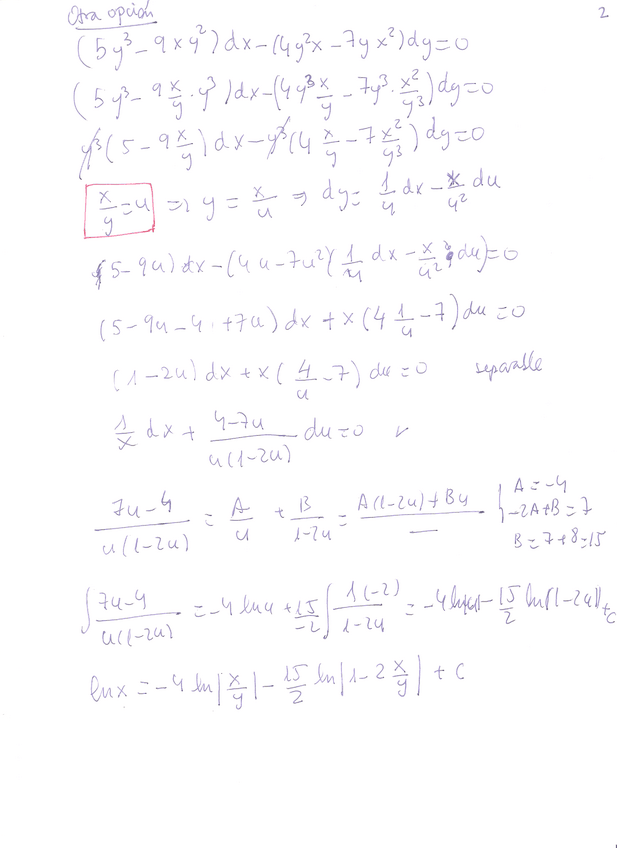 Otra opción 2
(5y³ - 9xy²)dx - (4y²x - 7yx²)dy = 0
(5y³ - 9 x/y · y³)dx - (4y³ x/y - 7y³ · x²/y³)dy = 0
y³(5 - 9 x/y)dx - y³(4 x/y - 7 x²/y³)dy = 0
x/y = u ⇒ y = x/u ⇒ dy = 1/u dx - x/u² du
(5 - 9u)dx - (4u - 7u²)(1/u dx - x/u² du) = 0
(5 - 9u - 4 + 7u)dx + x(4 1/u - 7)du = 0
(1 - 2u)dx + x(4/u - 7)du = 0 separable
1/x dx + (4 - 7u)/(u(1 - 2u)) du = 0 ✓
(7u - 4)/(u(1 - 2u)) = A/u + B/(1 - 2u) = (A(1 - 2u) + Bu)/— { A = -4
-2A + B = 7
B = 7 + 8 = 15
∫ (7u - 4)/(u(1 - 2u)) = -4 ln u + 15/-2 ∫ 1(-2)/(1 - 2u) = -4 ln|u| - 15/2 ln|1 - 2u| + C
ln x = -4 ln|x/y| - 15/2 ln|1 - 2 x/y| + C